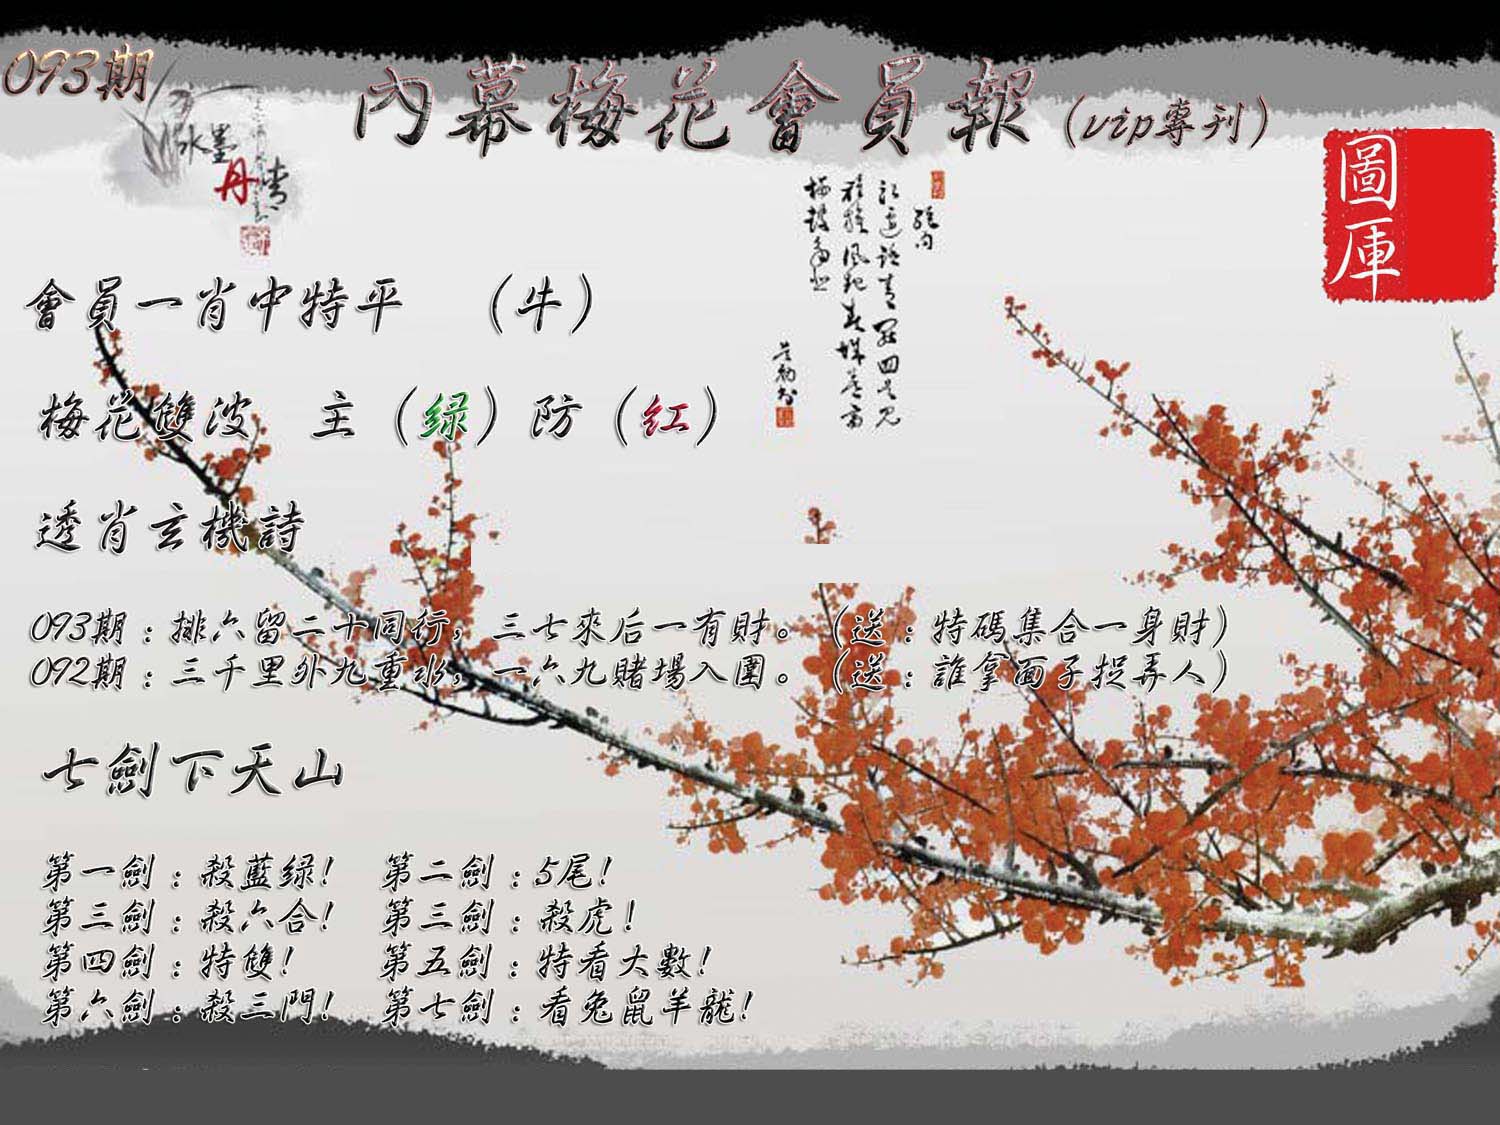 093期
內幕梅花會員報（vip專刊）
水墨
丹青
圖庫
會員一肖中特平 （牛）
梅花雙波 主（绿）防（红）
透肖玄機詩
093期：排六留二十同行，三七來后一有財。（送：特碼集合一身財）
092期：三千里外九重水，一六九賭場入圍。（送：誰拿面子捉弄人）
七劍下天山
第一劍：殺藍绿！ 第二劍：5尾！
第三劍：殺六合！ 第三劍：殺虎！
第四劍：特雙！ 第五劍：特看大數！
第六劍：殺三門！ 第七劍：看兔鼠羊龍！